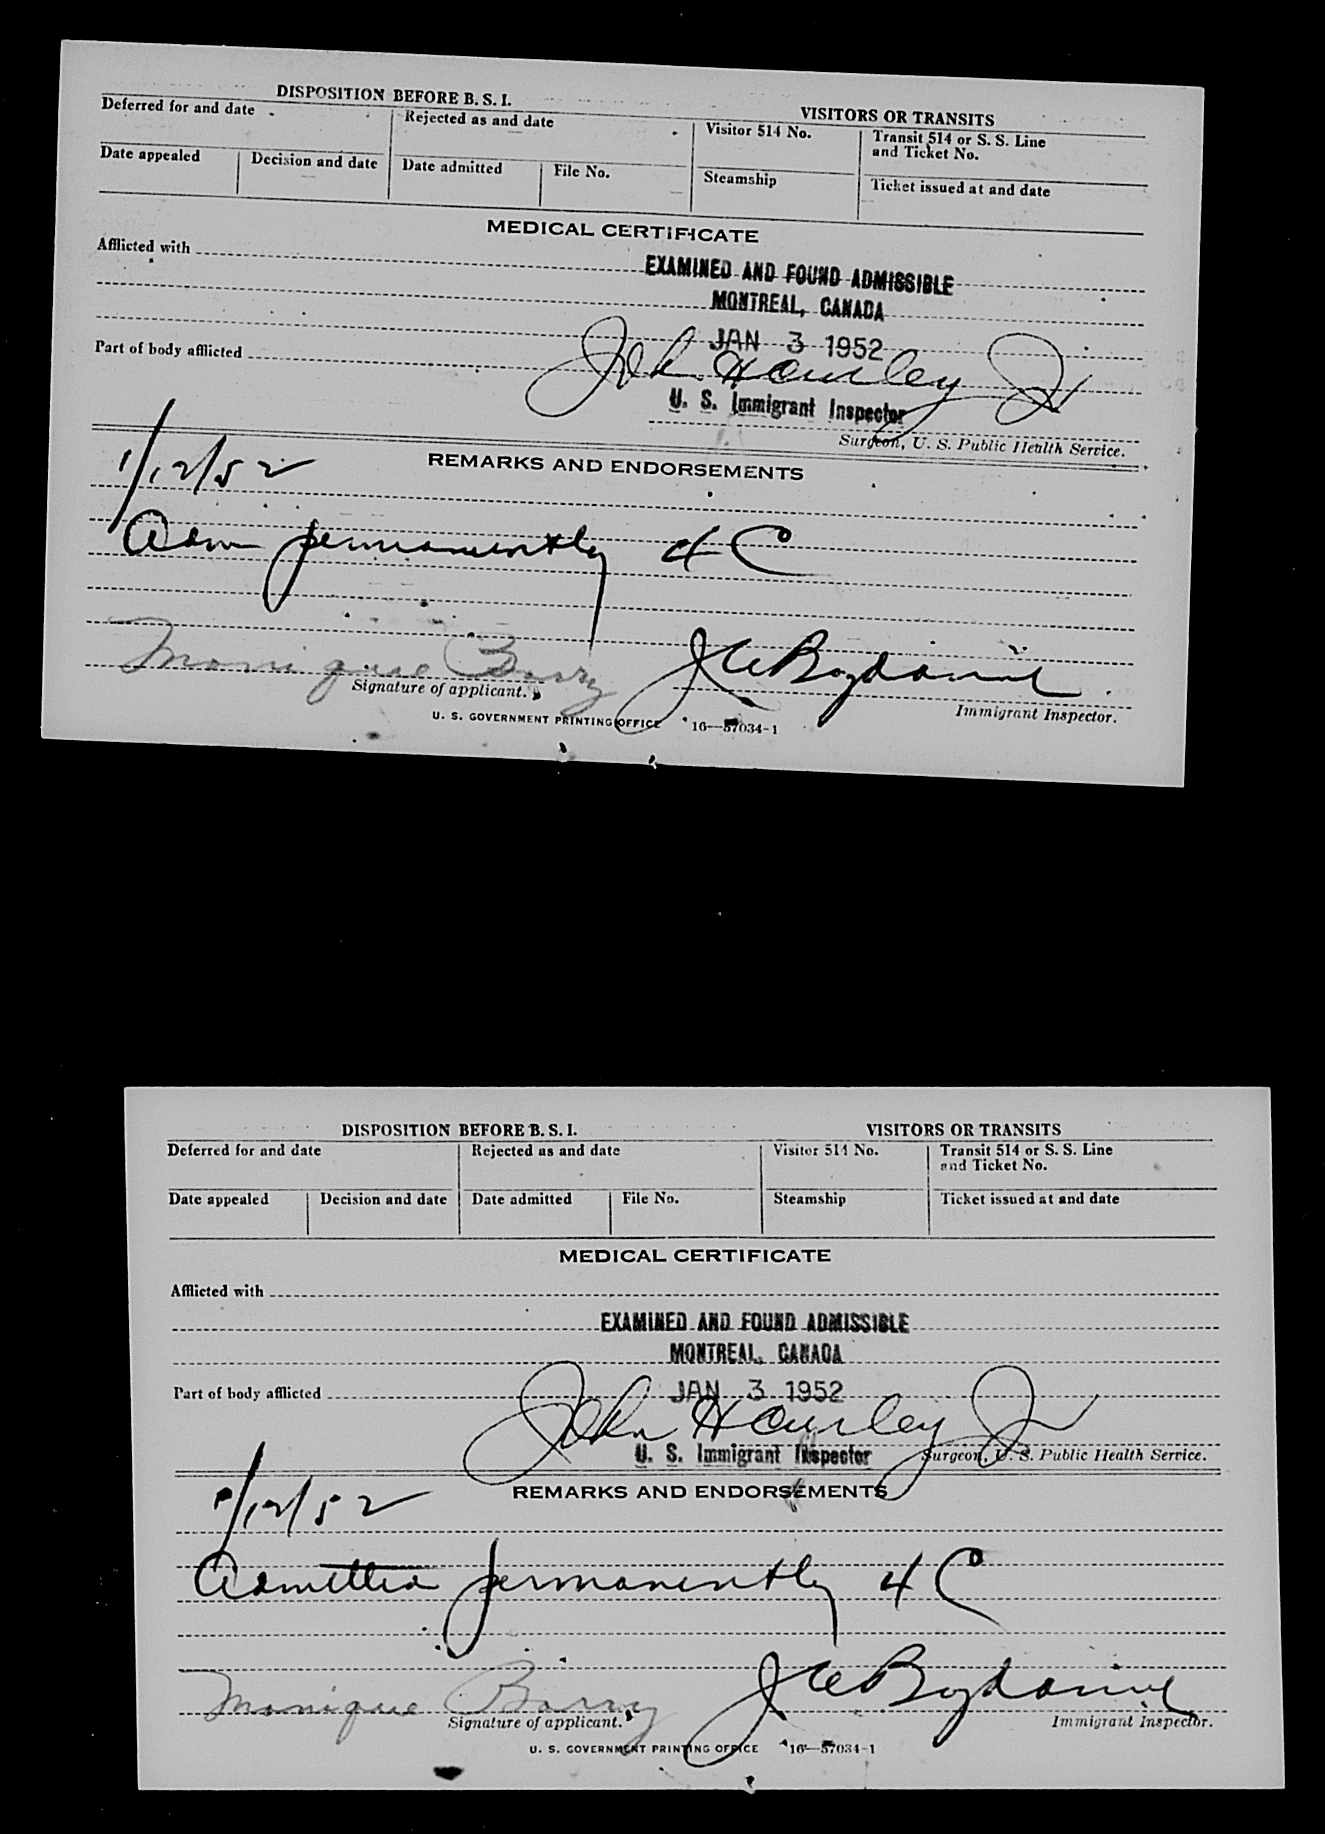 DISPOSITION BEFORE B. S. I.
VISITORS OR TRANSITS
Deferred for and date
Rejected as and date
Visitor 514 No.
Transit 514 or S. S. Line
and Ticket No.
Date appealed
Decision and date
Date admitted
File No.
Steamship
Ticket issued at and date
MEDICAL CERTIFICATE
Afflicted with
EXAMINED AND FOUND ADMISSIBLE
MONTREAL, CANADA
JAN 3 1952
Part of body afflicted
John Hawley Jr
U. S. Immigrant Inspector
Surgeon, U. S. Public Health Service.
REMARKS AND ENDORSEMENTS
1/12/52
Adm permanently 4C
Monique Barry
Signature of applicant.
Immigrant Inspector.
U. S. GOVERNMENT PRINTING OFFICE 16—57034-1
DISPOSITION BEFORE B. S. I.
VISITORS OR TRANSITS
Deferred for and date
Rejected as and date
Visitor 514 No.
Transit 514 or S. S. Line
and Ticket No.
Date appealed
Decision and date
Date admitted
File No.
Steamship
Ticket issued at and date
MEDICAL CERTIFICATE
Afflicted with
EXAMINED AND FOUND ADMISSIBLE
MONTREAL, CANADA
Part of body afflicted
JAN 3 1952
John Hawley Jr
U. S. Immigrant Inspector
Surgeon, U. S. Public Health Service.
REMARKS AND ENDORSEMENTS
1/12/52
Admitted permanently 4C
Monique Barry
Signature of applicant.
Immigrant Inspector.
U. S. GOVERNMENT PRINTING OFFICE 16—57034-1